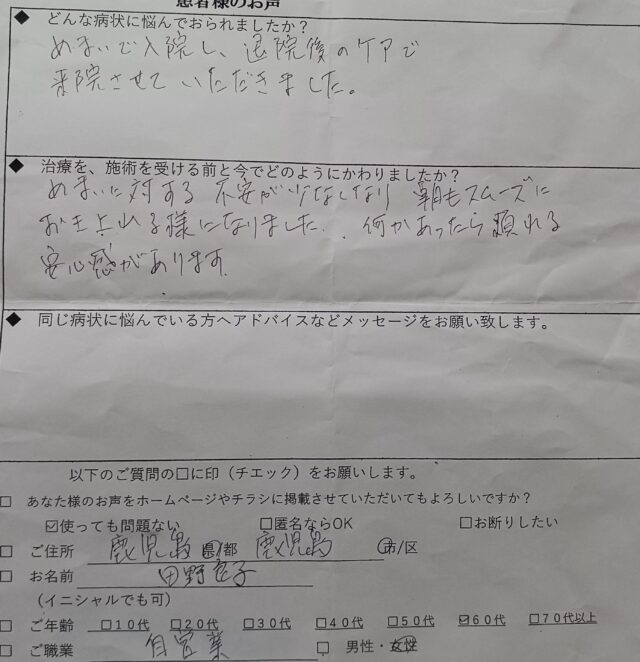 患者様のお声
◆ どんな病状に悩んでおられましたか？
めまいで入院し、退院後のケアで
来院させていただきました。
◆ 治療を、施術を受ける前と今でどのようにかわりましたか？
めまいに対する 不安が少なしなり 朝もスムーズに
お き上れる様になりました. 何かあったら頼れる
安心感があります.
◆ 同じ病状に悩んでいる方へアドバイスなどメッセージをお願い致します。
以下のご質問の□に印（チエック）をお願いします。
□ あなた様のお声をホームページやチラシに掲載させていただいてもよろしいですか？
☑使っても問題ない □匿名ならOK □お断りしたい
□ ご住所 鹿児島 県/都 鹿児島 市/区
□ お名前 田野 子
（イニシャルでも可）
□ ご年齢 □１０代 □２０代 □３０代 □４０代 □５０代 ☑６０代 □７０代以上
□ ご職業 自営業 □ 男性・女性